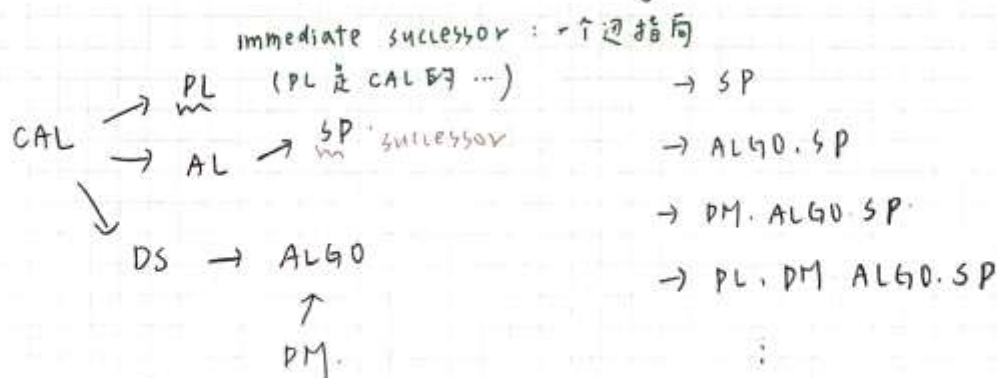 immediate successor : 一个边指向
(PL 是 CAL 的 ...)
PL
CAL
AL
SP successor
DS → ALGO
↑
DM.
→ SP
→ ALGO. SP
→ DM. ALGO. SP.
→ PL. DM ALGO. SP
⋮